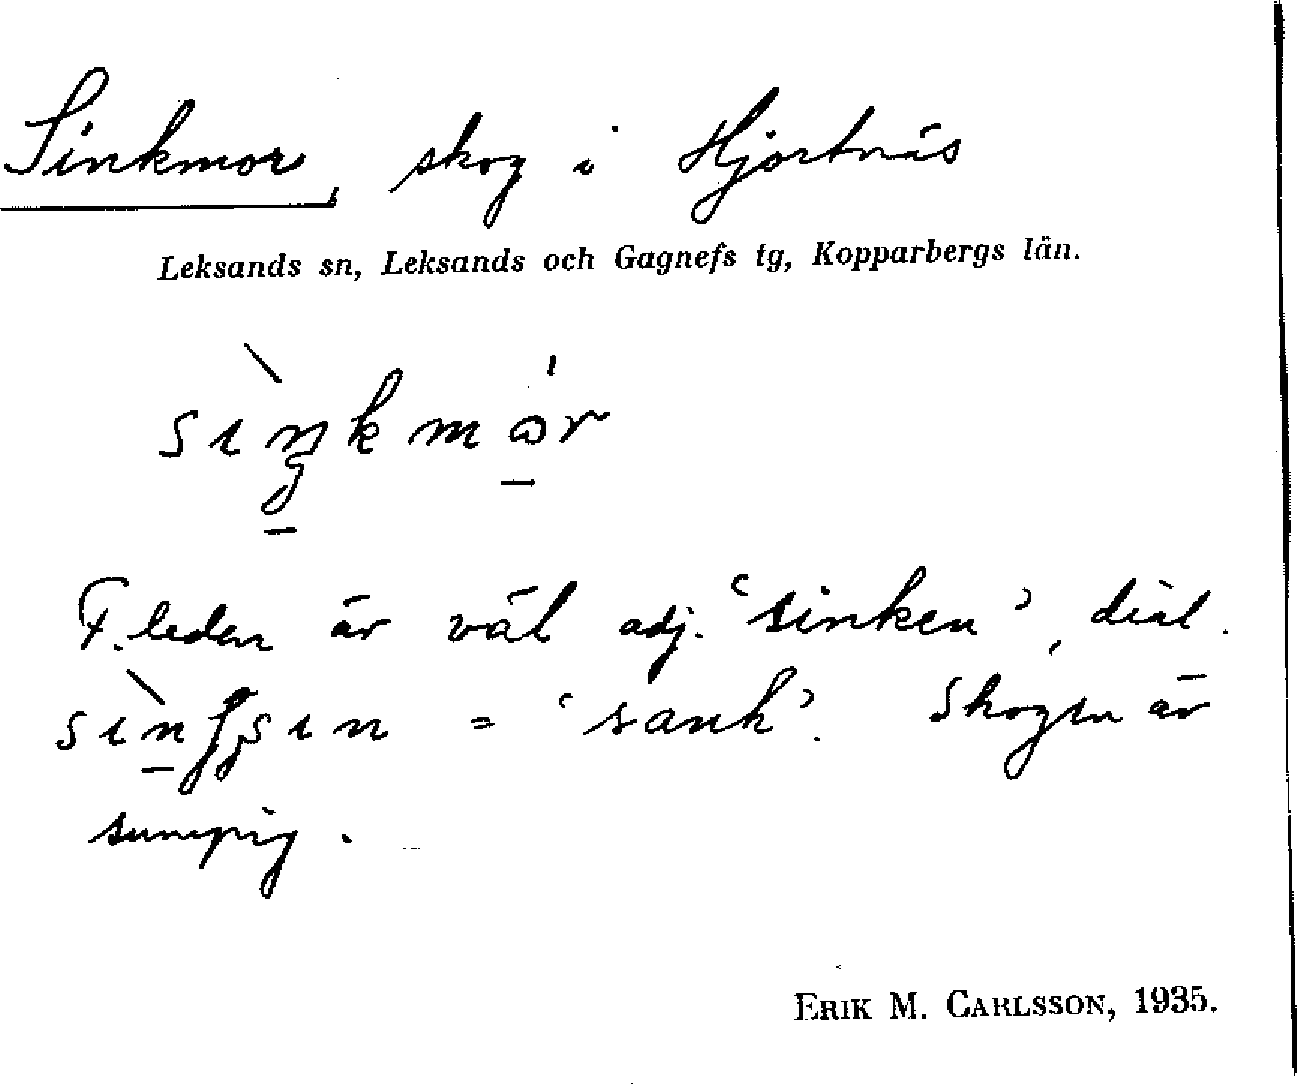 Sinkmor, skog i Hjortnäs
Leksands sn, Leksands och Gagnefs tg, Kopparbergs län.
sìŋkmɷ̀r
F.leden är väl adj. 'sinken', dial.
sank'. Skogen är
sumpig.
ERIK M. CARLSSON, 1935.